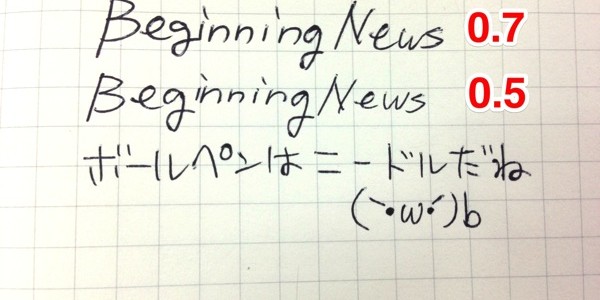 Beginning News 0.7
Beginning News 0.5
ボールペンはニードルだね
(`･ω･´)b